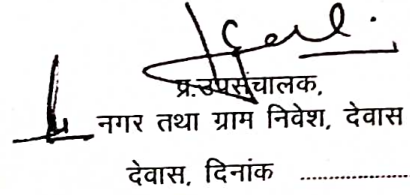 प्र.उपसंचालक,
नगर तथा ग्राम निवेश, देवास
देवास, दिनांक ....................